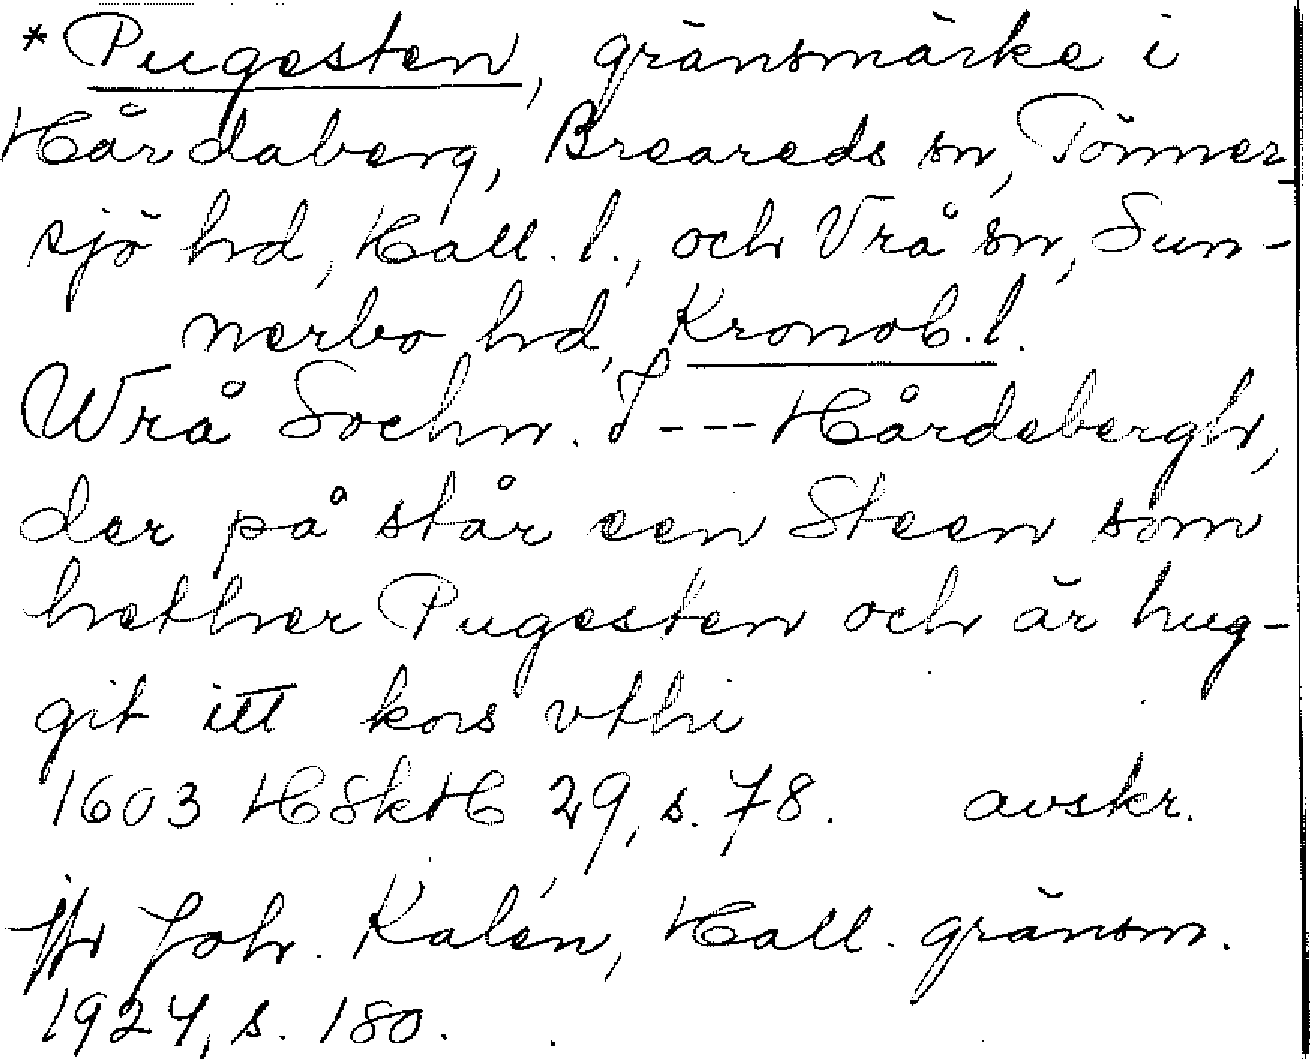 * Pugesten, gränsmärke i
Hårdaberg, Breareds sn, Tönner-
sjö hd, Hall. l., och Vrå sn, Sun-
nerbo hd, Kronob. l.
Wrå Sochn. I --- Hårdebergh,
der på står een Steen som
hether Pugesten och är hug-
git itt kors vthi
1603 HSkH 29, s. 78. avskr.
Jfr Joh. Kalén, Hall. gränsm.
1924, s. 180.